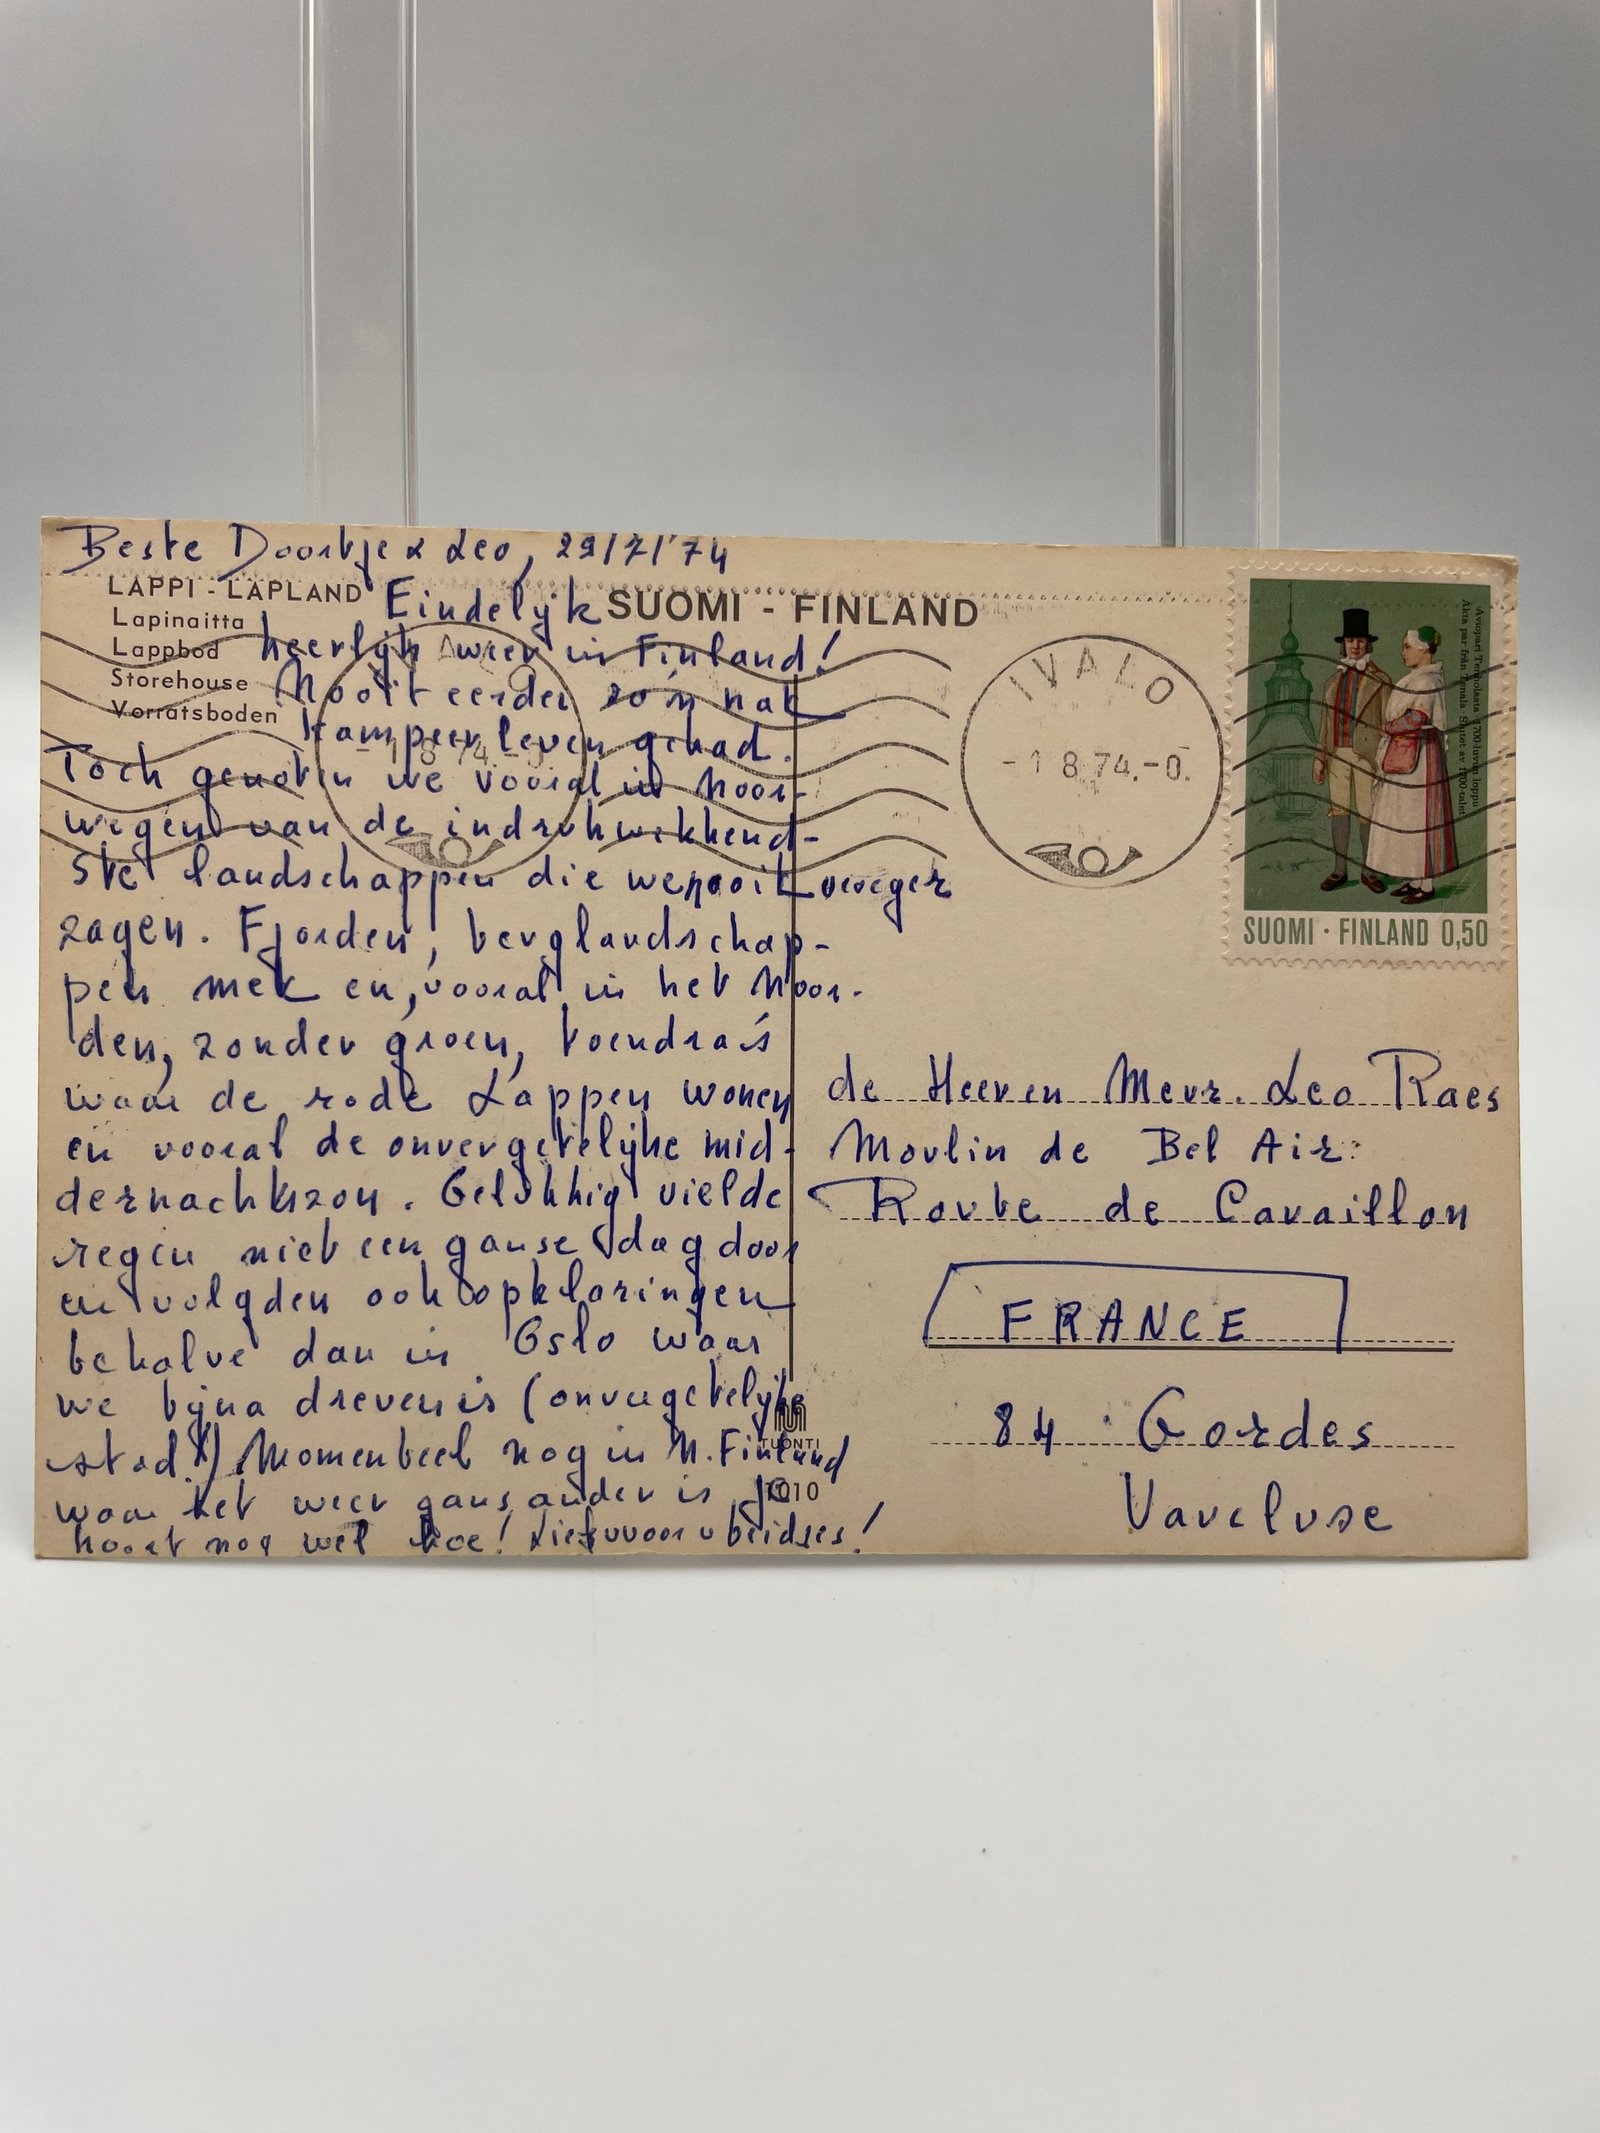 Beste Doortje & Leo, 29/7/'74
LAPPI - LAPLAND
Lapinaitta
Lappbod
Storehouse
Vorratsboden
SUOMI - FINLAND
Eindelyk
heerlyk weer in Finland!
Nooit eerder zo'n nat
kampeerleven gehad.
Toch genoten we vooral in Noor-
wegen van de indrukwekkend-
ste landschappen die we nooit vroeger
zagen. Fjorden, berglandschap-
pen met en, vooral in het Noor-
den, zonder groen, toendra's
waar de rode Lappen wonen
en vooral de onvergetelyke mid-
dernachtszon. Gelukkig vielde
regen niet een ganse dag door
en volgden ook opklaringen
behalve dan in Oslo waar
we byna dreven is (onvergetelyke
stad!) Momenteel nog in N. Finland
waar het weer gans ander is je
hoort nog wel hoe! Liefs voor u beidjes!
TUONTI
1010
IVALO
-1 8.74.-0.
Aviopari Tenholasta 1700-luvun loppu
Äkta par från Tenala · Slutet av 1700-talet
SUOMI · FINLAND 0,50
de Heer en Mevr. Leo Raes
Moulin de Bel Air
Route de Cavaillon
FRANCE
84 · Gordes
Vaucluse